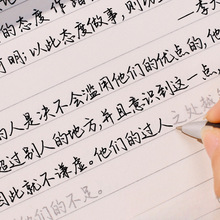 的态度作
明:以此态度做事,则
的人是决不会滥用他们的优点的,他
超过别人的地方,并且意识到这一点
因此就不谦虚。他们的过人之处越
他们的不足。